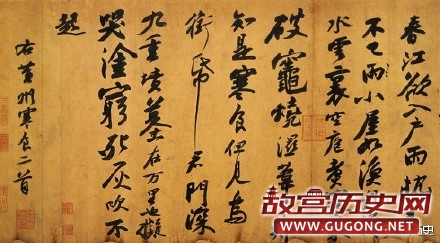 春江欲入戶雨勢
不已雨小屋如漁
水雲裏空庖煮
破竈燒濕葦
知是寒食但見烏
銜帋君門深
九重墳墓在万里也擬
哭塗窮死灰吹不
起
右黃州寒食二首
故宫历史网
www.GUGONG.net